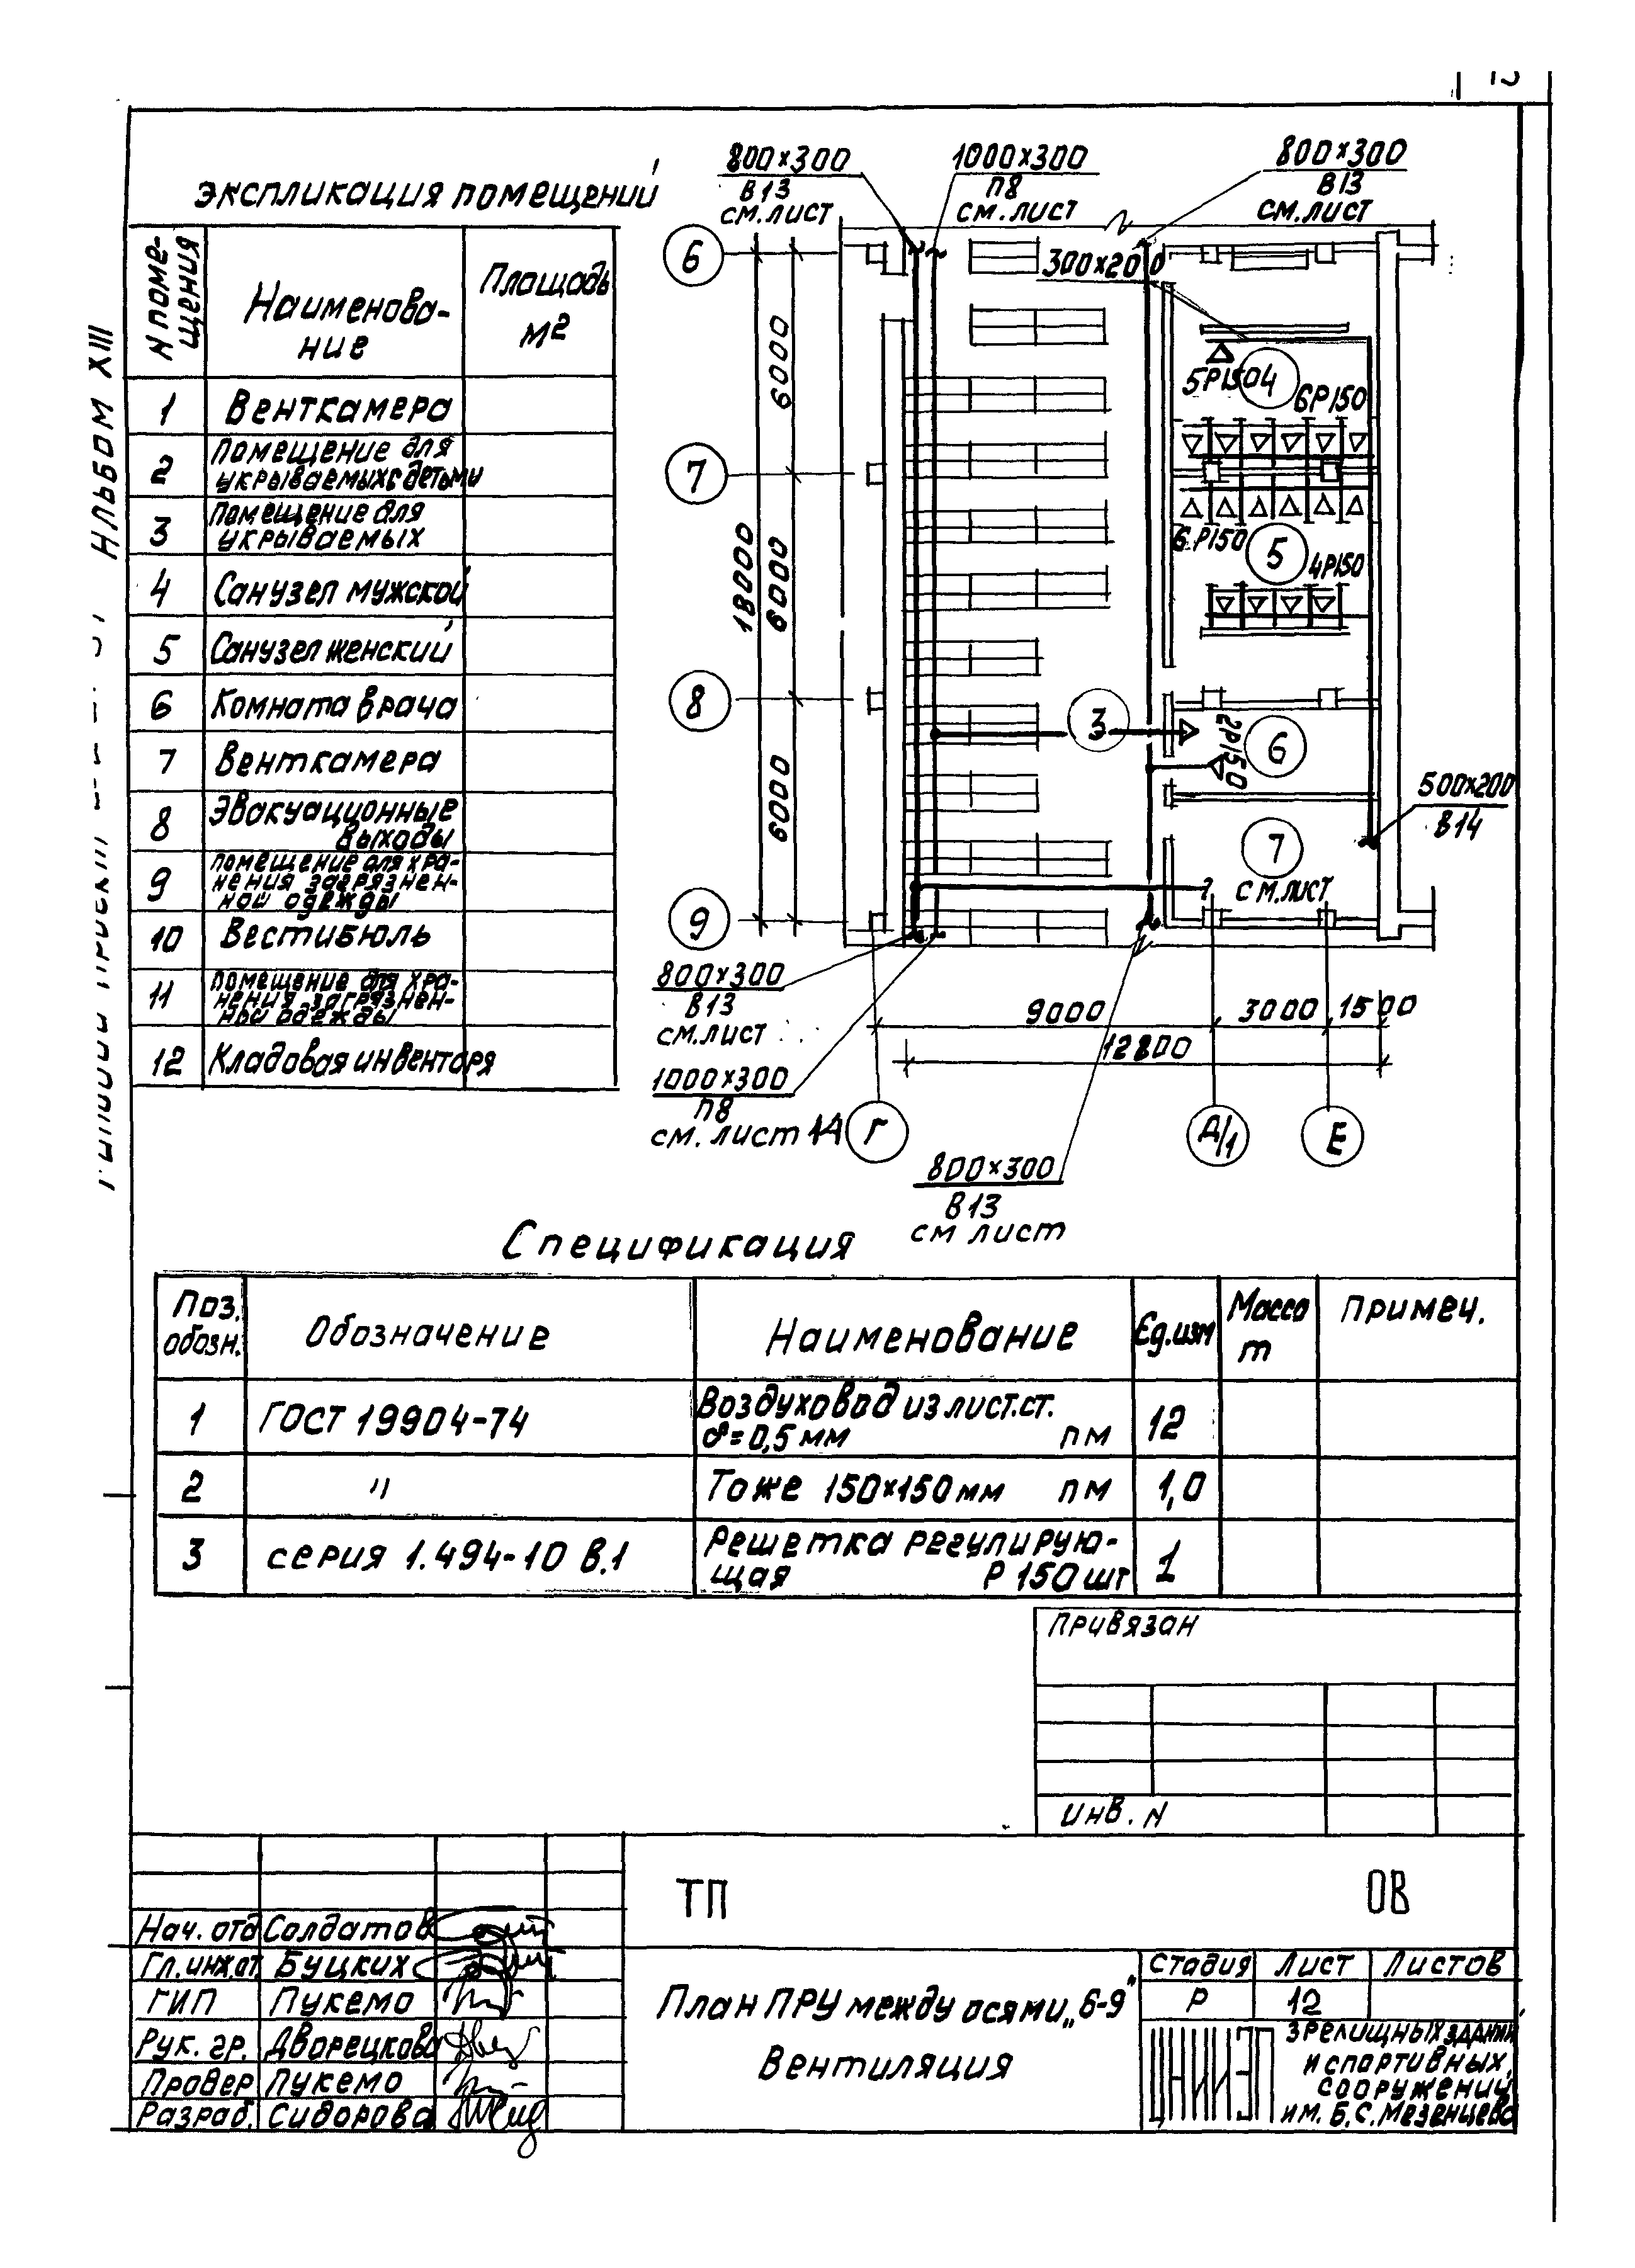 АЛЬБОМ XIII
экспликация помещений
N поме-
щения
Наименова-
ние
Площадь
м2
1 Венткамера
2 Помещение для
укрываемых с детьми
3 Помещение для
укрываемых
4 Санузел мужской
5 Санузел женский
6 Комната врача
7 Венткамера
8 Эвакуационные
выходы
9 помещение для хра-
нения загрязнен-
ной одежды
10 Вестибюль
11 помещение для хра-
нения загрязнен-
ной одежды
12 Кладовая инвентаря
800×300
В13
см. лист
1000×300
П8
см. лист
800×300
В13
см. лист
300×200
6
7
8
9
6000
6000
6000
18000
5Р150
4
6Р150
6Р150
5
4Р150
3
2Р150
6
500×200
В14
7
см. лист
800×300
В13
см. лист
1000×300
П8
см. лист 14
800×300
В13
см лист
9000
3000
1500
12800
Г
Д/1
Е
Спецификация
Поз.
обозн.
Обозначение
Наименование
Ед.изм
Масса
т
Примеч.
1 ГОСТ 19904-74 Воздуховод из лист.ст.
δ=0,5 мм пм 12
2 " Тоже 150×150 мм пм 1,0
3 серия 1.494-10 В.1 Решетка регулирую-
щая Р 150 шт 1
Привязан
Инв. N
ТП
ОВ
Нач. отд Солдатов
Гл. инж.от. Буцких
ГИП Пукемо
Рук. гр. Дворецкова
Провер Пукемо
Разраб. Сидорова
План ПРУ между осями „6-9"
Вентиляция
Стадия Лист Листов
Р 12
ЦНИИЭП
зрелищных зданий
и спортивных
сооружений
им. Б.С. Мезенцева